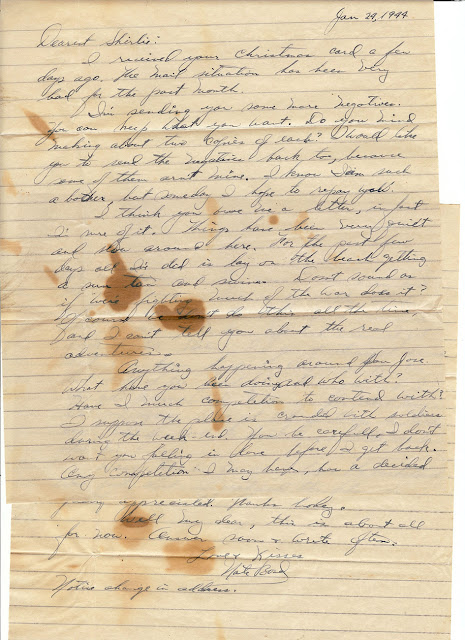 Jan 29, 1944
Dearest Shirlie:
I received your Christmas card a few
days ago. The mail situation has been very
bad for the past month.
I'm sending you some more negatives.
You can keep what you want. Do you mind
making about two copies of each? I would like
you to send the negatives back too, because
some of them aren't mine. I know I am such
a bother, but someday I hope to repay you.
I think you owe us a letter, in fact
I'm sure of it. Things have been very quiet
and slow around here. For the past few
days all I've did is lay on the beach getting
a sun tan and swim. Don't sound as
if we're fighting much of the war does it?
Of course we don't do this all the time,
and I can't tell you about the real
adventures.
Anything happening around San Jose.
What have you been doing and who with?
Have I much competition to contend with?
I suppose the place is crowded with soldiers
during the week-end. You be careful, I don't
want you falling in love before I get back.
Any competition I may have, has a decided
appreciated. Thanks
Well my dear, this is about all
for now. Answer soon & write often.
Love & Kisses
Nate
Notice change in address.